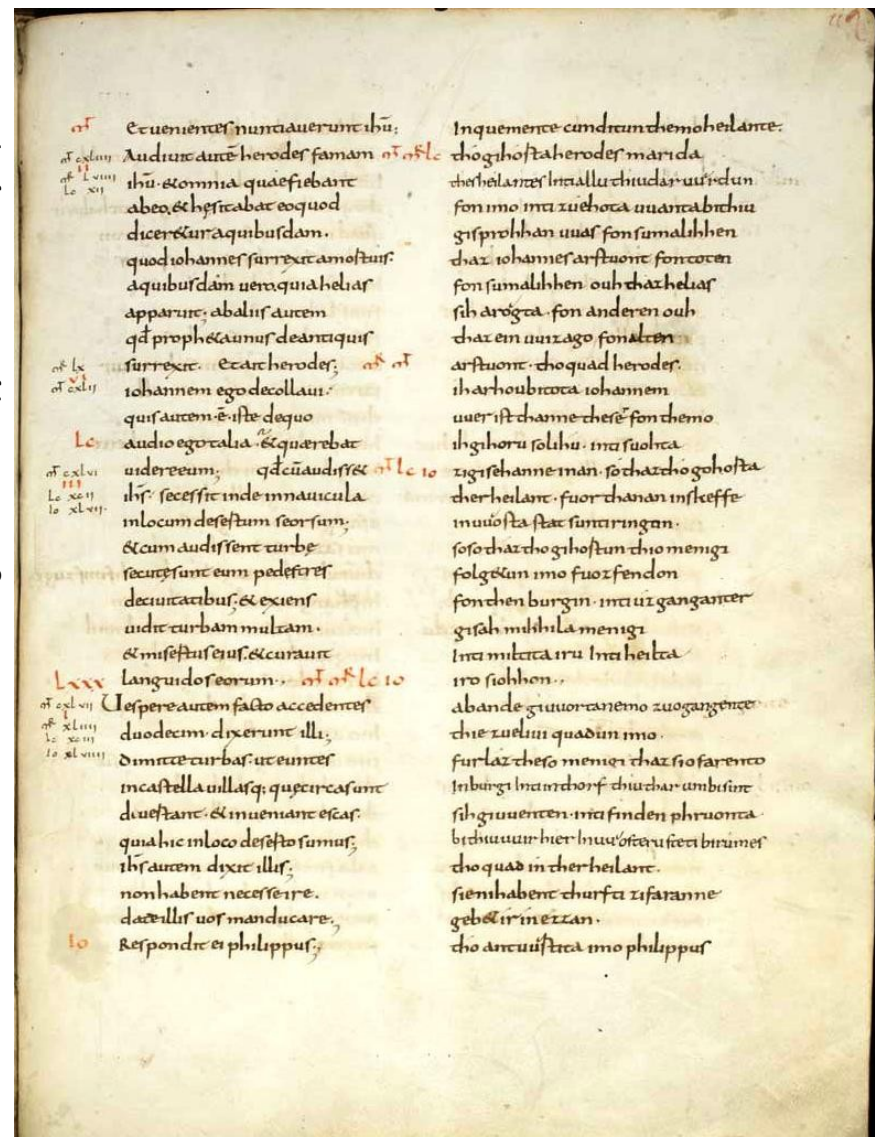 Et venientes nuntiaverunt ihū;
Audivit autē herodes famam
ihū· & omnia quae fiebant
ab eo, & hęsitabat eo quod
dicer&ur a quibusdam·
quod iohannes surrexit a mortuis;
a quibusdam vero, quia helias
apparuit; ab aliis autem
qđ proph&a unus de antiquis
surrexit· Et ait herodes;
iohannem ego decollavi·
quis autem· ē· iste de quo
audio ego talia· & quaerebat
videre eum; qđ cū audiss&
ihs̄· secessit inde in navicula
in locum desertum seorsum;
& cum audissent turbę
secutę sunt eum pedestres
de civitatibus; & exiens
vidit turbam multam·
& misertus eius· & curavit
languidos eorum·,
LXXX
Vespere autem facto accedentes
duodecim· dixerunt illi;
dimitte turbas· ut euntes
in castella villasq; quę circa sunt
divertant· & inveniant escas·
quia hic in loco deserto sumus;
ihs̄ autem dixit illis;
non habent necesse ire·
date illis vos manducare;
Io Respondit ei philippus;
Inquemente cunditun themo heilante·
tho gihorta herodes marida
thes heilantes Inti allu thiu dar vvurdun
fon imo inti zuehota vuanta bithiu
gisprohhan vuas fon sumalihhen
thaz iohannes arstuont fon toten
fon sumalihhen ouh thaz helias
sih arougta· fon anderen ouh
thaz ein vuizago fon alten
arstuont· tho quad herodes·
ih arhoubitota iohannem
vuer ist thanne these fon themo
ih gihoru solihu· inti suohta
zi gisehanne inan· so thaz tho gohorta
ther heilant· fuor thanan in skeffe
in vuosta stat suntiringun·
soso thaz tho gihortun thio menigi
folg&un imo fuozfendon
fon then burgin· inti uzganganter
gisah mihhila menigi
Inti miltita iru Inti heilta
iro siohhon·,
abande givuortanemo zuogangente
thie zuelivi quadun imo·
furlaz theso menigi thaz sio farento
In burgi Inti in thorf thiu thar umbi sint
sih givventen· inti finden phruonta
bithiu vuir hier In vuosteru steti birumes
tho quad in ther heilant·
sie ni habent thurfti zi faranne
geb& ir in ezzan·
tho antvurtita imo philippus